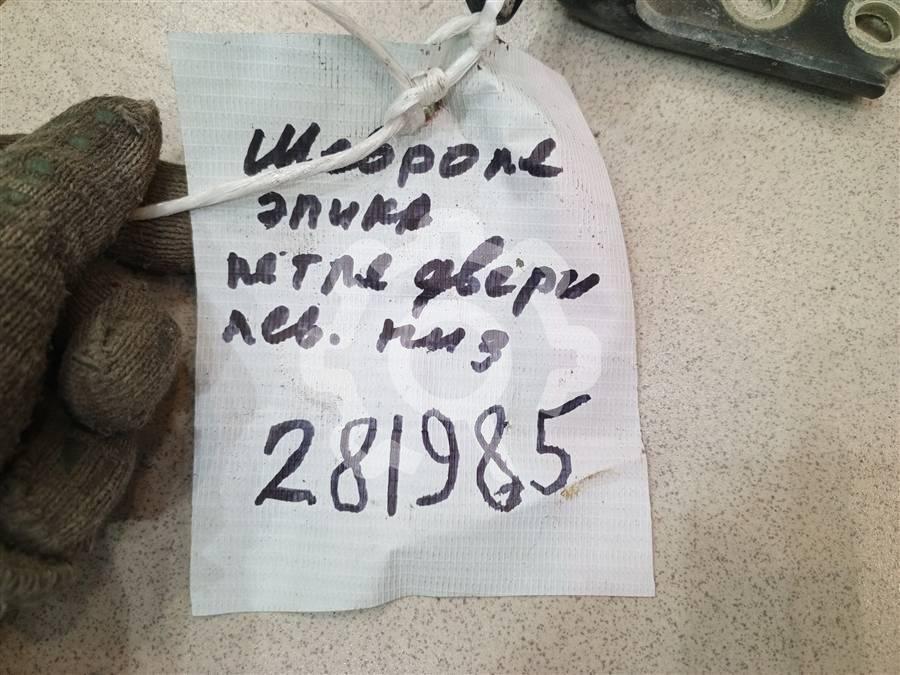 Шевроле
эпика
петля двери
лев. низ
281985